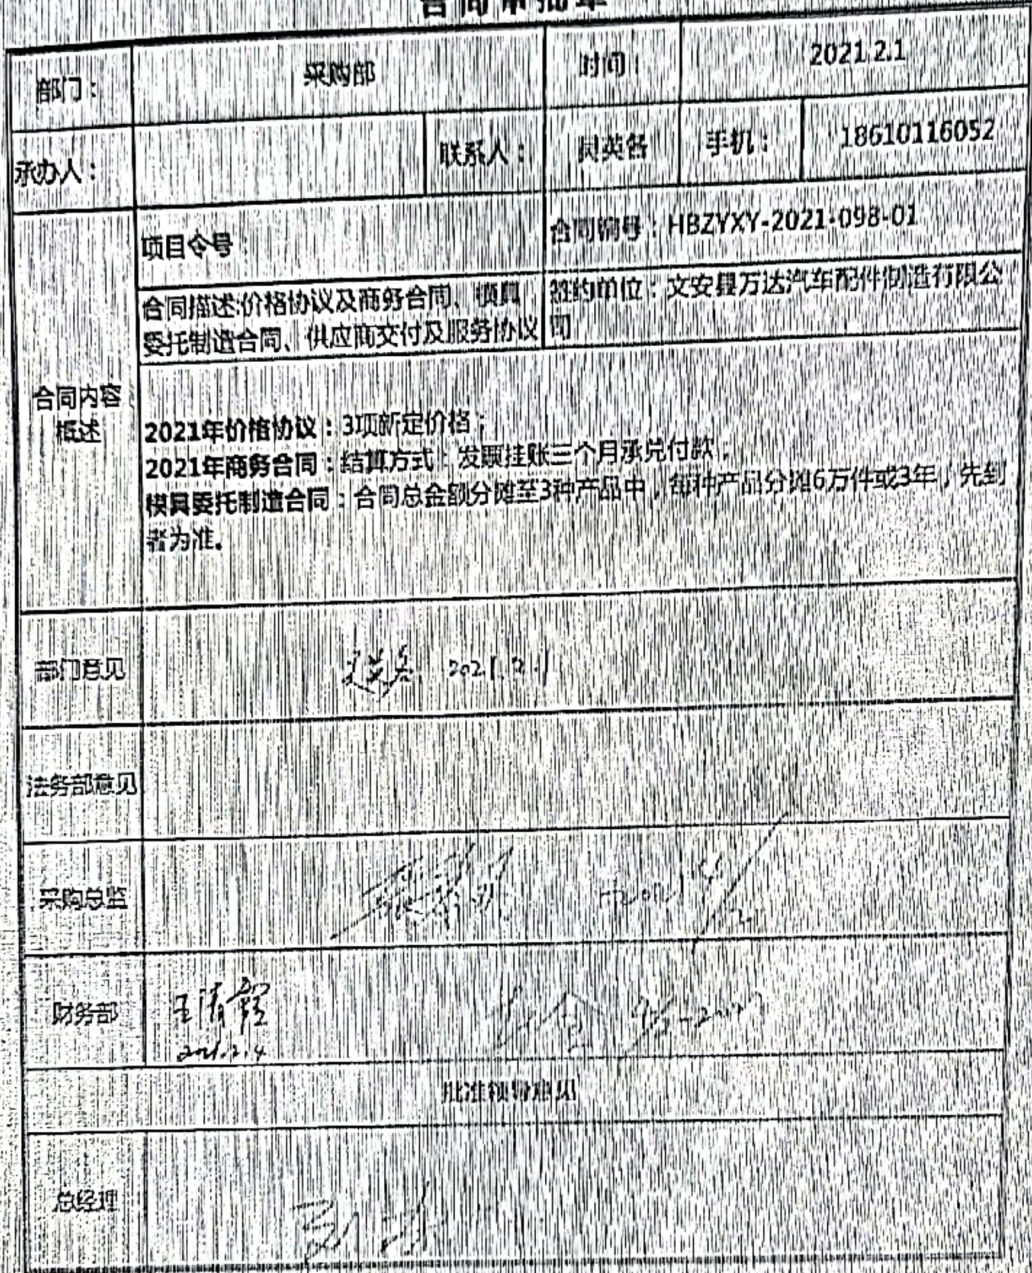 合同审批单
部门：
采购部
时间：
2021.2.1
承办人：
联系人：
手机：
18610116052
合同内容
概述
项目令号：
合同编号：HBZYXY-2021-098-01
合同描述:价格协议及商务合同、模具
委托制造合同、供应商交付及服务协议
签约单位：文安县万达汽车配件制造有限公
司
2021年价格协议：3项新定价格；
2021年商务合同：结算方式：发票挂账三个月承兑付款；
模具委托制造合同：合同总金额分摊至3种产品中，每种产品分摊6万件或3年，先到
者为准。
部门意见
2021.2.1
法务部意见
采购总监
财务部
王清
2021.2.4
批准领导意见
总经理